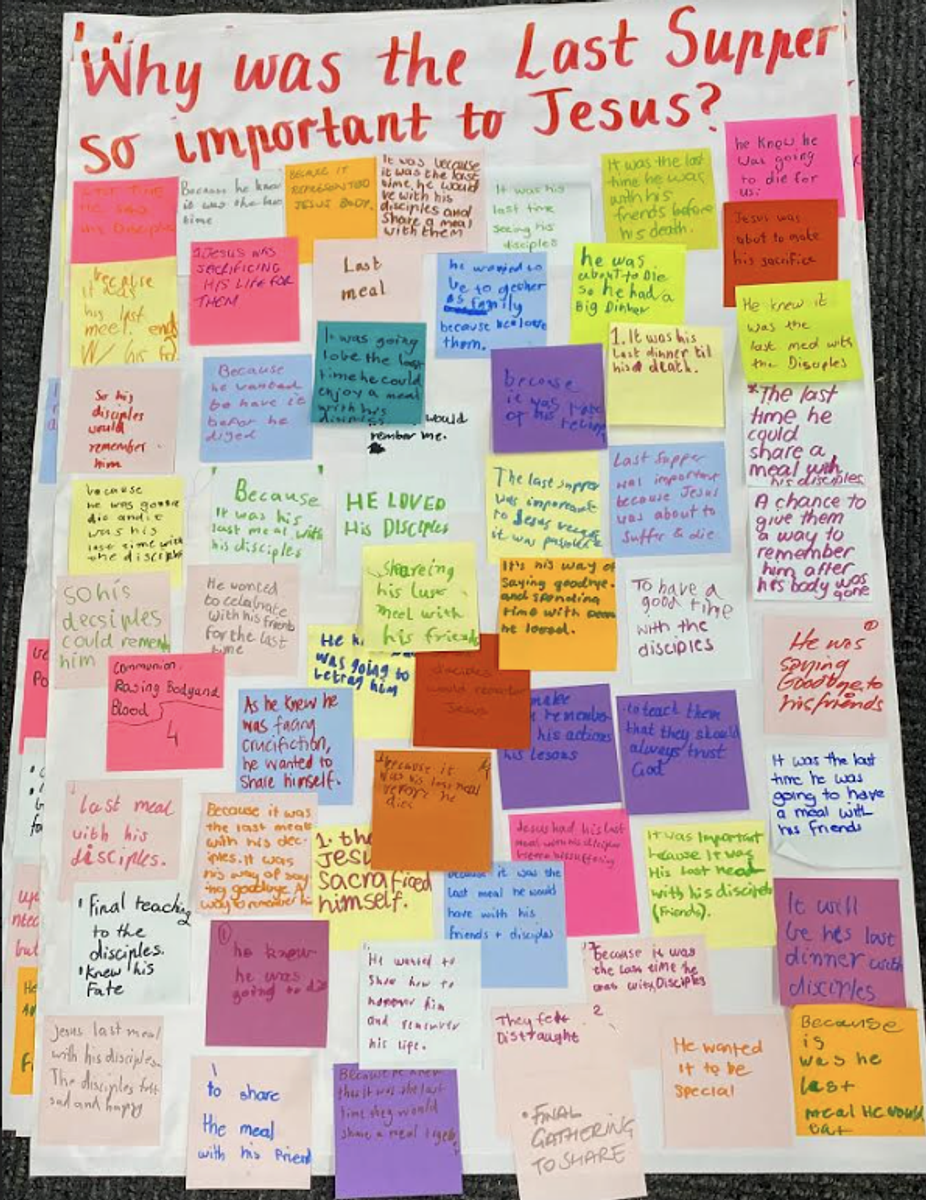 Why was the Last Supper
so important to Jesus?
LAST TIME
HE SAW
his Disciple
Because he knew
it was the last
time
BECAUSE IT
REPRESENTED
JESUS BODY.
It was because
it was the last
time he would
be with his
disciples and
share a meal
with them
It was his
last time
seeing his
disciples
It was the last
time he was
with his
friends before
his death.
he knew he
was going
to die for
us.
Jesus was
abot to make
his sacrifice
because
it was
his last
meel.
W/ his
JESUS WAS
SACRIFICING
HIS LIFE FOR
THEM
Last
meal
he wanted to
be to gether
as family
because he loves
them.
he was
about to Die
so he had a
Big Dinner
1. It was his
Last dinner til
his death.
He knew it
was the
last med with
the Disciples
So his
disciples
would
remember
him
Because
he wanted
to have it
befor he
dyed
It was going
to be the last
time he could
enjoy a meal
with his
would
rember me.
because
it was
of his
*The last
time he
could
share a
meal with
his disciples
because
he was gonna
die and it
was his
last time with
the disciple
Because
it was his
last meal with
his disciples
HE LOVED
His DISCIPLES
The last supper
was important
to Jesus
it was
Last Supper
was important
because Jesus
was about to
suffer & die.
A chance to
give them
a way to
remember
him after
his body was
gone
so his
decsiples
could remem
him
He wanted
to celebrate
with his friends
for the last
time
shareing
his last
meel with
his friends
It's his way of
saying goodbye.
and spending
time with
he loved.
To have a
good time
with the
disciples
He was
saying
Goodbye to
his friends
Communion.
Rasing Body and
Blood
4
He
was going to
betray him
As he knew he
was facing
crucifiction,
he wanted to
share himself.
would
Jesus
make
remember
his actions
his lesons
to teach them
that they should
always trust
God
It was the last
time he was
going to have
a meal with
his friends
Last meal
with his
disciples.
Because it was
the last meal
with his dec-
iples. It was
his way of say
ing goodbye. A
way to remember
because it
was his last meal
before he
dies
1. the
Jesus
sacraficed
himself.
because it was the
last meal he would
have with his
friends + disciples
Jesus had his last
meal with his disciples
before his suffering
It was Important
because It was
His last meal
with his disciples
(friends).
It will
be hes last
dinner with
disciples
• Final teaching
to the
disciples.
• Knew his
Fate
he knew
he was
going to die
He wanted to
show how to
honover him
and remember
his life.
because it was
the last time he
was with Disciples
They felt
Distraught
2
• FINAL
GATHERING
TO SHARE
He wanted
it to be
special
Because
is
was he
last
meal He would
eat
Jesus last meal
with his disciples.
The disciples felt
sad and happy
1
to share
the meal
with his Friend
Because he knew
that it was the last
time they would
share a meal